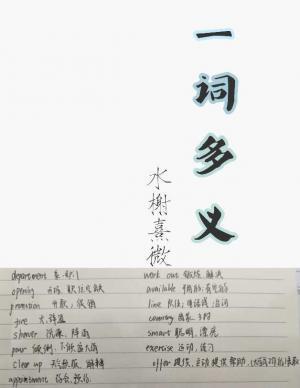 一词多义
水榭熹微
department 系，部门
opening 开场，职位空缺
promotion 升职；促销
fire 火，解雇
shower 洗澡，阵雨
pour 倾倒，下倾盆大雨
clear up 天气放晴，
appointment 约会，预约
work out 锻炼，解决
available
line 队伍；电话线；台词
country 国家，乡村
smart 聪明，漂亮
exercise 运动，练习
offer 提供，主动提供帮助，